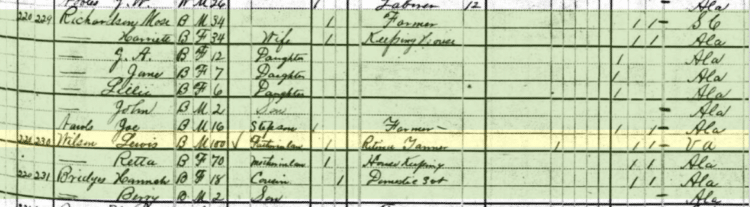 W M 26 Laborer 12 Ala
220 229 Richardson, Mose B M 34 1 Farmer 1 1 S C
— Harriett B F 34 Wife 1 Keeping House 1 1 Ala
— J. A. B F 12 Daughter 1 Ala
— Jane B F 7 Daughter 1 Ala
— Lillie B F 6 Daughter 1 Ala
— John B M 2 Son Ala
Joe B M 16 Stepson 1 Farmer 1 1 Ala
220 230 Wilson Lewis B M 100 Fatherinlaw 1 1 1 1 VA
Retta B F 70 Motherinlaw 1 House Keeping 1 1 Ala
220 231 Bridges Hannah B F 18 Cousin 1 Domestic Svt 1 1 Ala
Berry B M 2 Son Ala